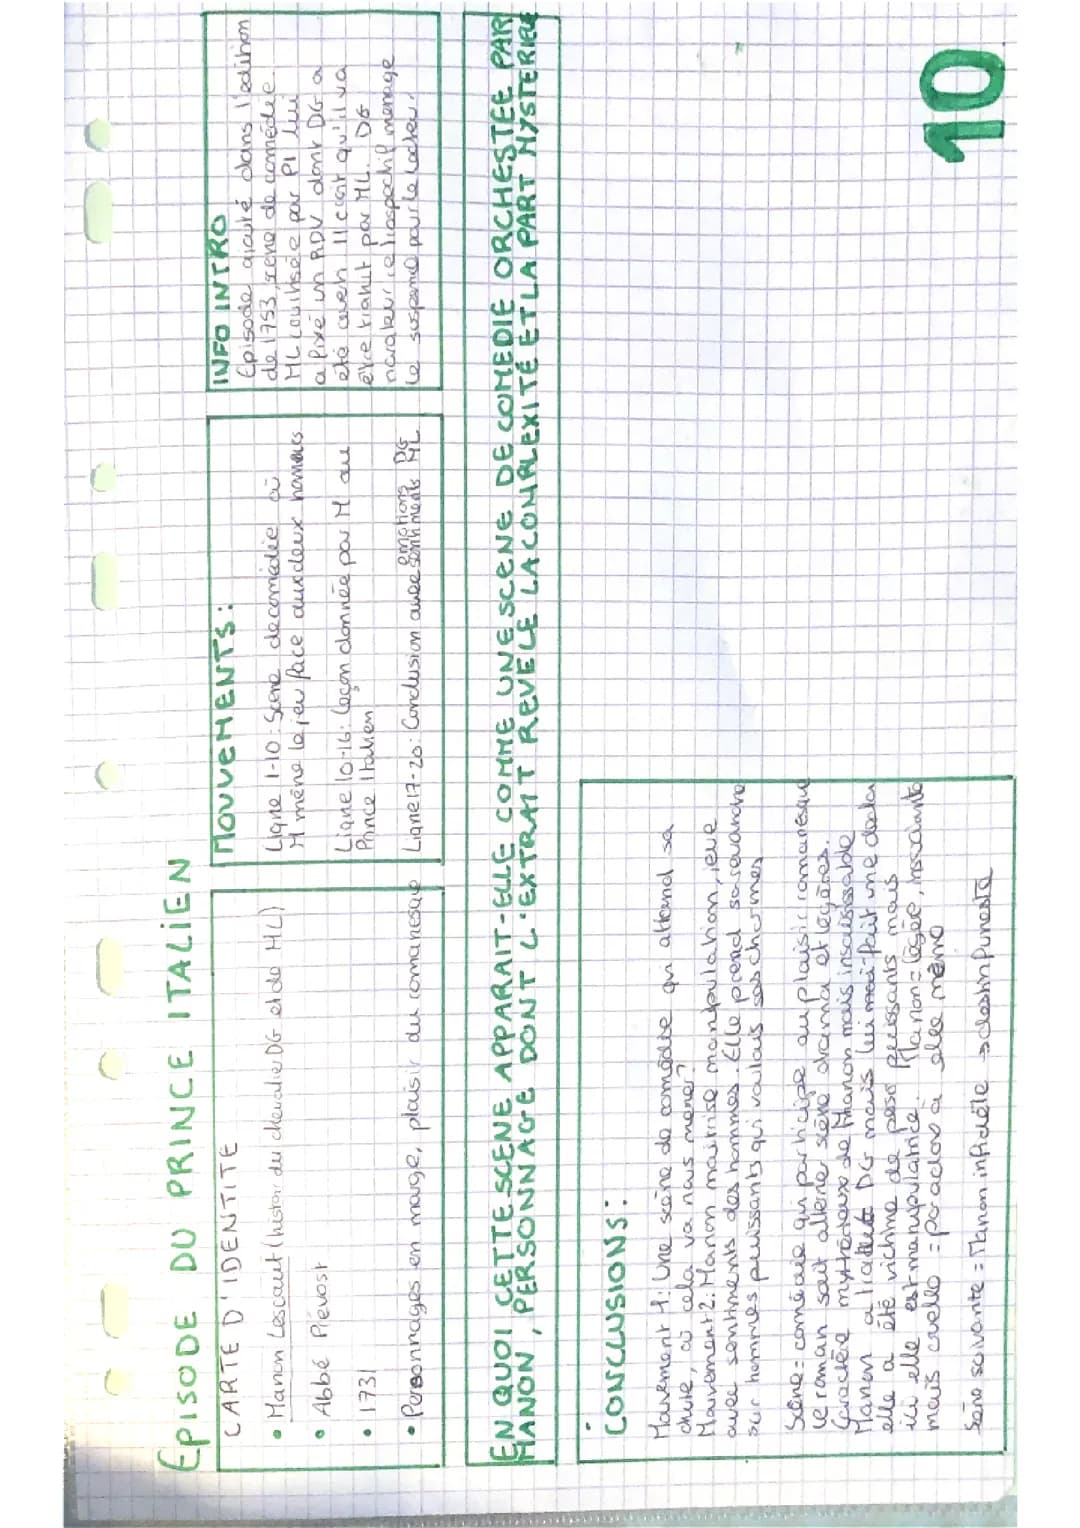 EPISODE DU PRINCE ITALIEN
CARTE D'IDENTITE
• Manon Lescaut (histoire du chevalier DG et de ML)
• Abbé Prévost
• 1731
• Personnages en marge, plaisir du romanesque
MOUVEMENTS:
Ligne 1-10: Scène de comédie où
M mène le jeu face aux deux hommes
Ligne 10-16: Leçon donnée par M au
Prince Italien
Ligne 17-20: Conclusion avec sentiments ML
emotions DG
INFO INTRO
Episode ajouté dans l'edition
de 1753, scène de comédie
ML courtisée par PI lui
a fixé un RDV dont DG a
été averti Il croit qu'il va
être trahit par ML. DG
narateur retrospectif menage
le suspense pour le lecteur.
EN QUOI CETTE SCENE APPARAIT-ELLE COMME UNE SCENE DE COMEDIE ORCHESTEE PAR
MANON, PERSONNAGE DONT L'EXTRAIT REVELE LA COMPLEXITÉ ET LA PART MYSTERIEUSE
CONCLUSIONS:
Mouvement 1: Une scène de comédie qui attend sa
chute, où cela va nous mener?
Mouvement 2: Manon maitrise manipulation, joue
avec sentiments des hommes. Elle prend sa revanche
sur hommes puissants qui voulais ses charmes
Scène = comédie qui participe au plaisir romanesque
le roman sait alterner scène drama et légères.
Caractère mystérieux de Manon mais insaisissable
Manon a DG mais lui fait une
elle a été victime de puissants mais
ici elle est manipulatrice. Manon = légée, insouciante
mais cruelle = paradoxe a elle même
Scène suivante = Manon infidèle → destin funeste
10